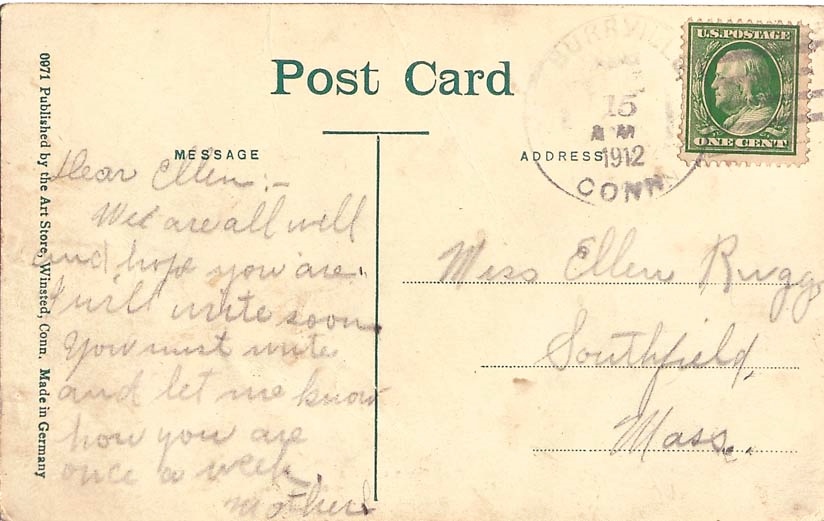 Post Card
BURRVILLE
15
AM
1912
CONN
U.S. POSTAGE
ONE CENT
MESSAGE
ADDRESS
Dear Ellen:-
We are all well
and hope you are.
I will write soon.
You must write
and let me know
how you are
once a week.
Mother
Miss Ellen Ruggs
Southfield,
Mass.
0971 Published by the Art Store, Winsted, Conn. Made in Germany